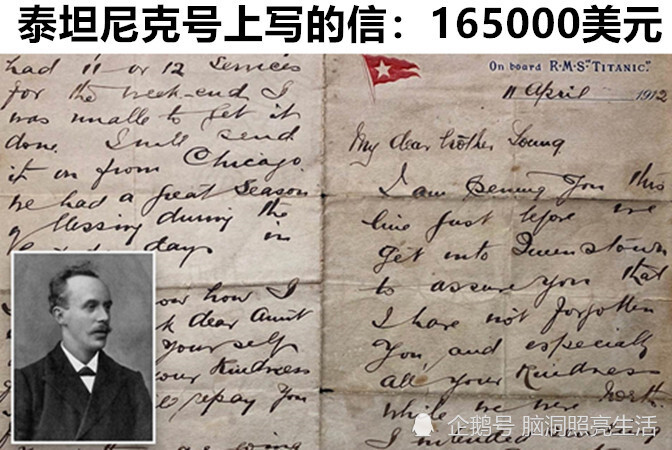 泰坦尼克号上写的信：165000美元
had 11 or 12 services
for the week-end I
was unable to get it
done. I will send
it on from Chicago
We had a great Season
of blessing during the
days in
how I
dear Aunt
yourself
your kindness
repay you
On board R.M.S. "TITANIC."
11 April 1912
My dear brother Young
I am penning you this
line just before we
get into Queenstown
to assure you that
I have not forgotten
you and especially
all your kindness
while we were North
I intended
企鹅号 脑洞照亮生活